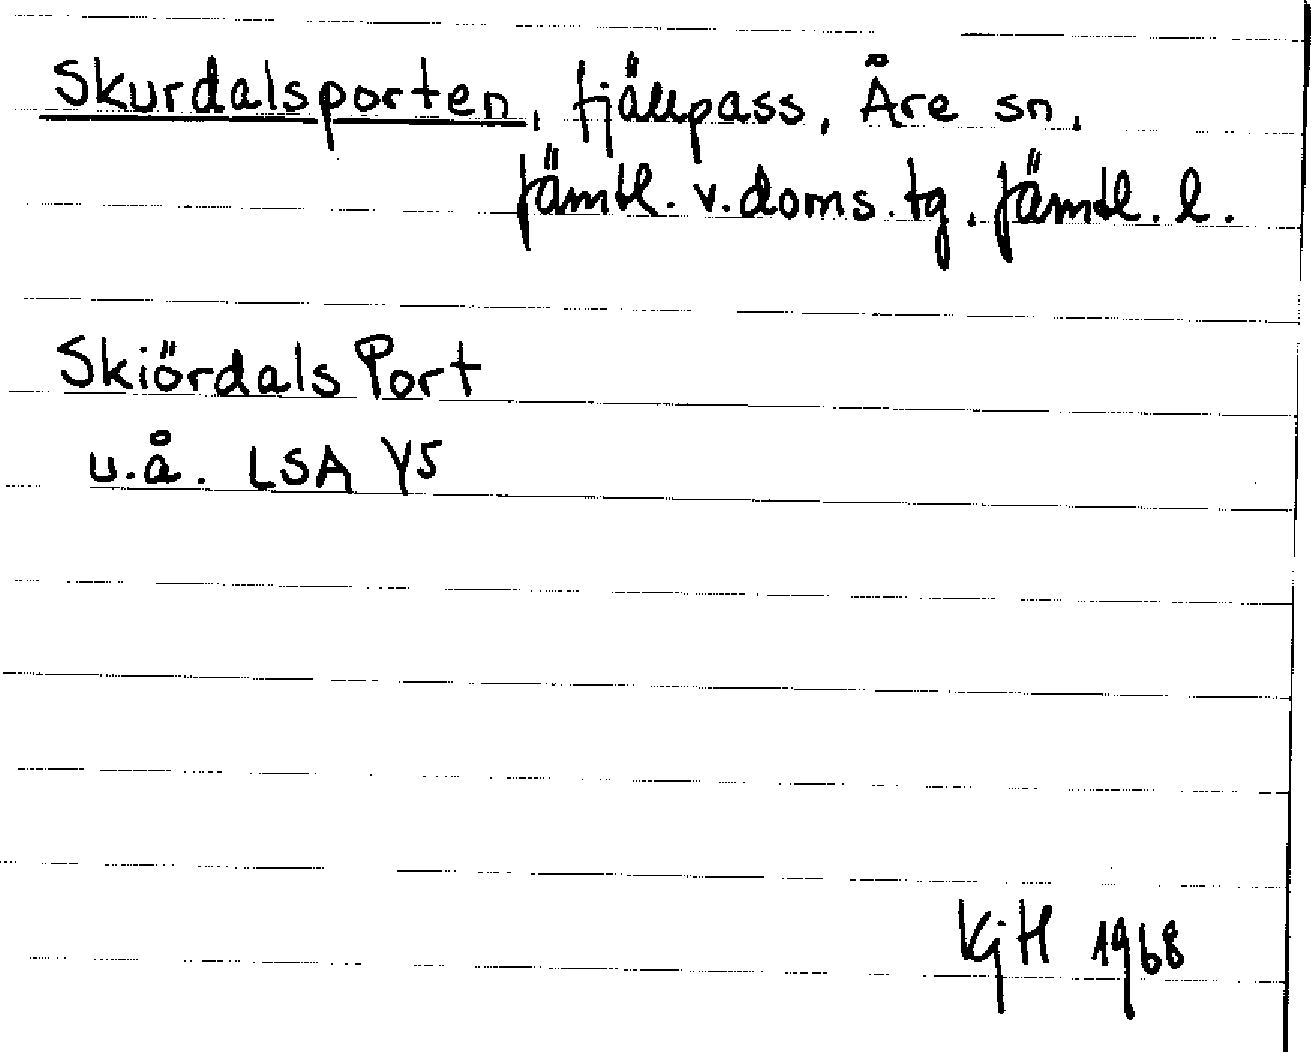 Skurdalsporten, fjällpass, Åre sn,
Jämtl. v. doms. tg. Jämtl. l.
Skiördals Port
u.å. LSA Y5
KjH 1968